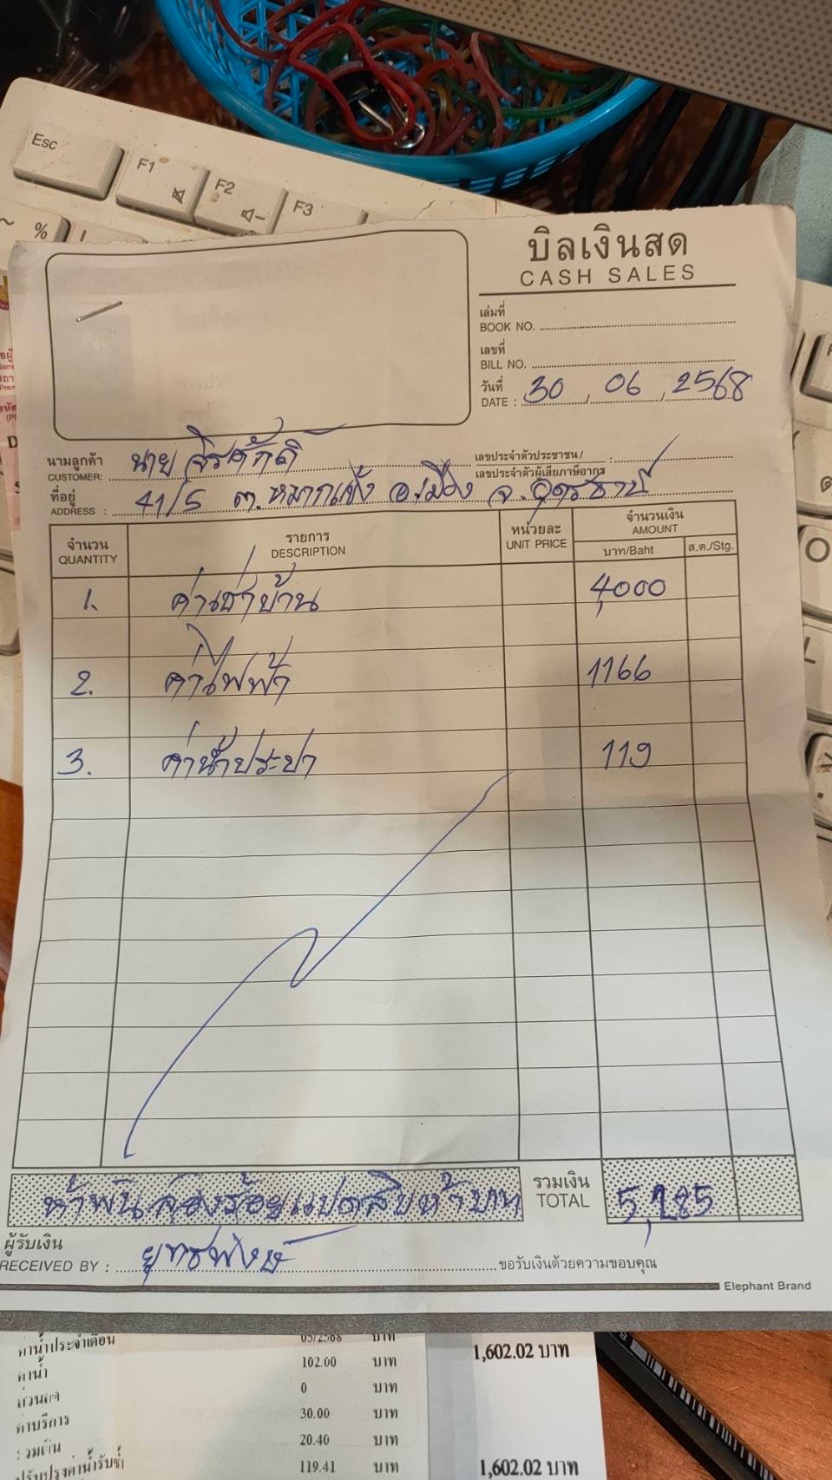 Esc
F1
F2
F3
%
บิลเงินสด
CASH SALES
เล่มที่
BOOK NO.
เลขที่
BILL NO.
วันที่
DATE : 30 , 06 , 2568
นามลูกค้า นาย จิรศักดิ์
CUSTOMER:
เลขประจำตัวประชาชน/ :
เลขประจำตัวผู้เสียภาษีอากร
ที่อยู่ 41/5 ต.หมากแข้ง อ.เมือง จ.อุดรธานี
ADDRESS :
จำนวน รายการ หน่วยละ จำนวนเงิน
QUANTITY DESCRIPTION UNIT PRICE AMOUNT
บาท/Baht ส.ต./Stg.
1. ค่าเช่าบ้าน 4,000
2. ค่าไฟฟ้า 1166
3. ค่าน้ำประปา 119
ห้าพันสองร้อยแปดสิบห้าบาท รวมเงิน 5,285
TOTAL
ผู้รับเงิน ยุทธพงษ์
RECEIVED BY : ขอรับเงินด้วยความขอบคุณ
Elephant Brand
ค่าน้ำประจำเดือน 05/2568 บาท
1,602.02 บาท
ค่าน้ำ 102.00 บาท
ส่วนลด 0 บาท
ค่าบริการ 30.00 บาท
รวมเงิน 20.40 บาท
119.41 บาท 1,602.02 บาท